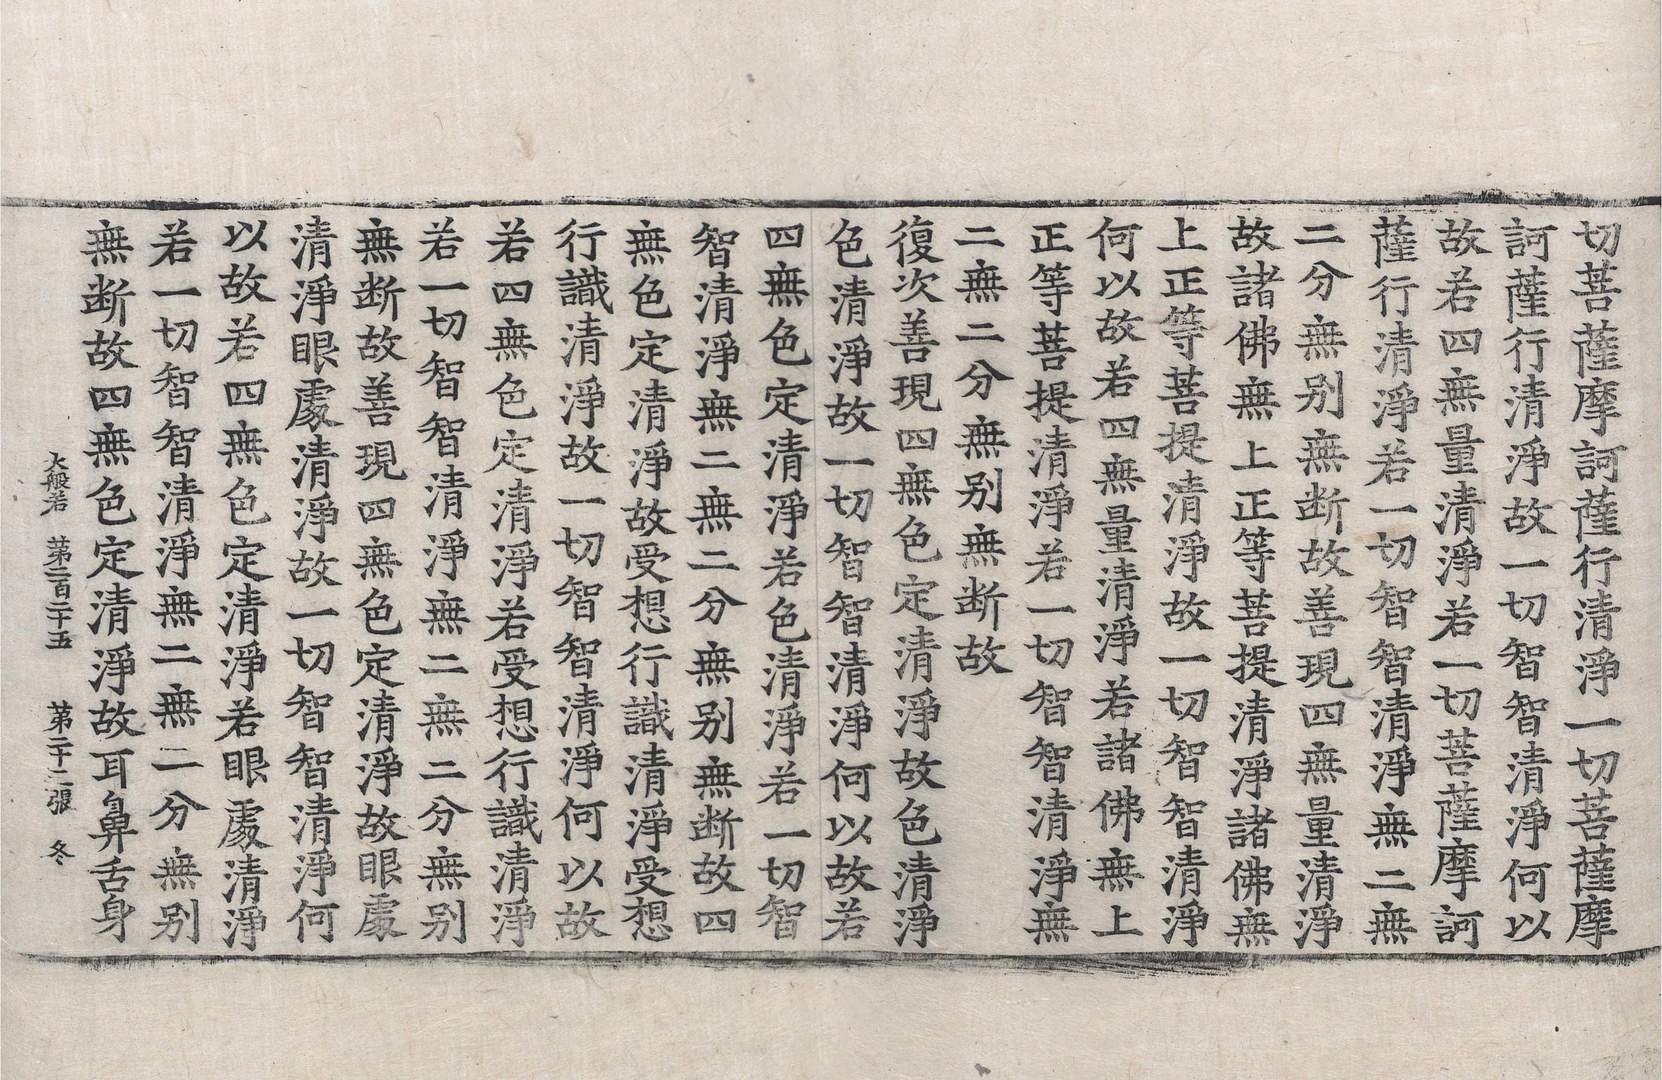 切菩薩摩訶薩行清淨一切菩薩摩
訶薩行清淨故一切智智清淨何以
故若四無量清淨若一切菩薩摩訶
薩行清淨若一切智智清淨無二無
二分無别無断故善現四無量清淨
故諸佛無上正等菩提清淨諸佛無
上正等菩提清淨故一切智智清淨
何以故若四無量清淨若諸佛無上
正等菩提清淨若一切智智清淨無
二無二分無别無断故
復次善現四無色定清淨故色清淨
色清淨故一切智智清淨何以故若
四無色定清淨若色清淨若一切智
智清淨無二無二分無别無断故四
無色定清淨故受想行識清淨受想
行識清淨故一切智智清淨何以故
若四無色定清淨若受想行識清淨
若一切智智清淨無二無二分無别
無断故善現四無色定清淨故眼處
清淨眼處清淨故一切智智清淨何
以故若四無色定清淨若眼處清淨
若一切智智清淨無二無二分無别
無断故四無色定清淨故耳鼻舌身
大般若 苐二百二十五 苐二十二張 冬